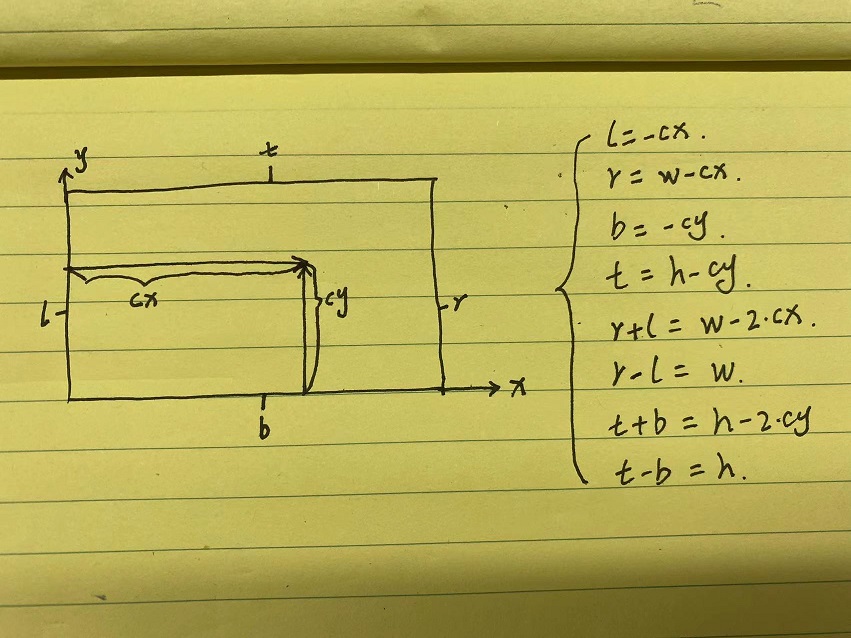 y
t
cx
cy
l
r
x
b
l = -cx.
r = w-cx.
b = -cy.
t = h-cy.
r+l = w-2·cx.
r-l = w.
t+b = h-2·cy
t-b = h.